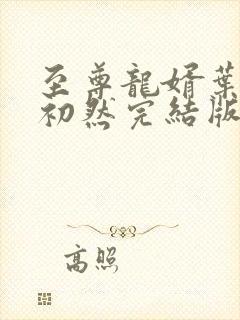 至尊龍婿葉
初然完結版
高照